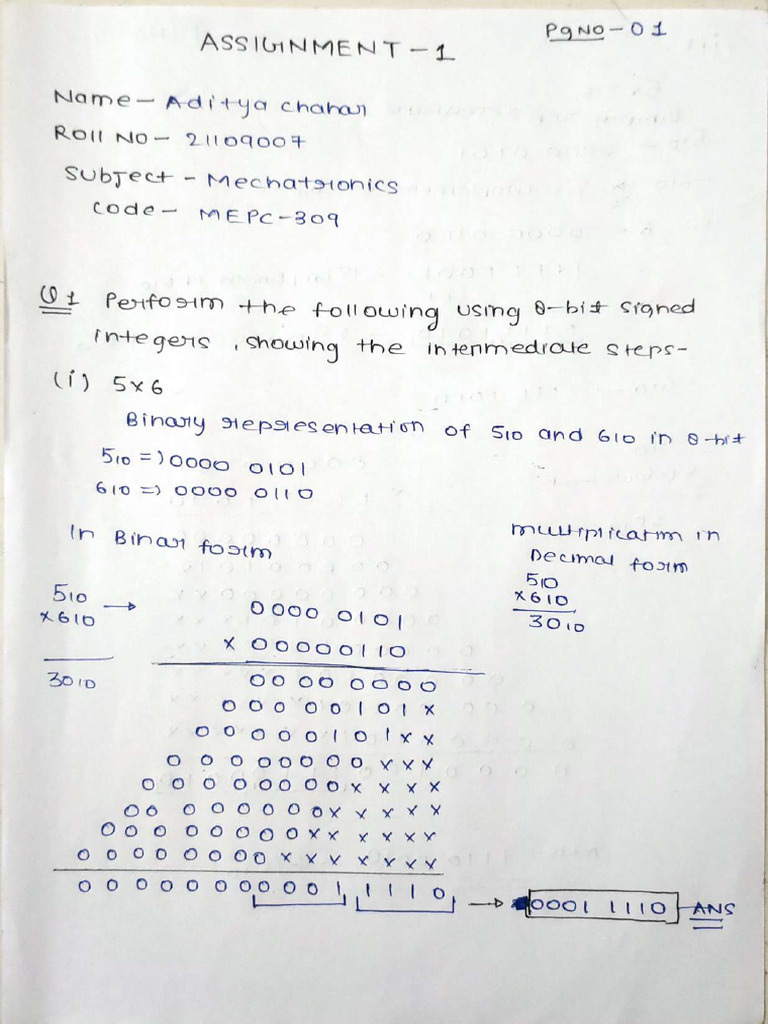 PgNO-01
ASSIGNMENT-1
Name- Aditya Chahar
Roll No- 21109007
Subject - Mechatronics
Code- MEPC-309
Q1 Perform the following using 8-bit signed
integers, showing the intermediate steps-
(i) 5x6
Binary representation of 510 and 610 in 8-bit
510 => 0000 0101
610 => 0000 0110
In Binar form
Multiplication in
Decimal form
510
x610
3010
510 → 0000 0101
x610 x 00000110
3010 0000 0000
00000101x
00000101xx
00000000xxx
00000000xxxx
00000000xxxxx
00000000xxxxxx
00000000xxxxxxx
00000000001 1110 → 0001 1110 ANS